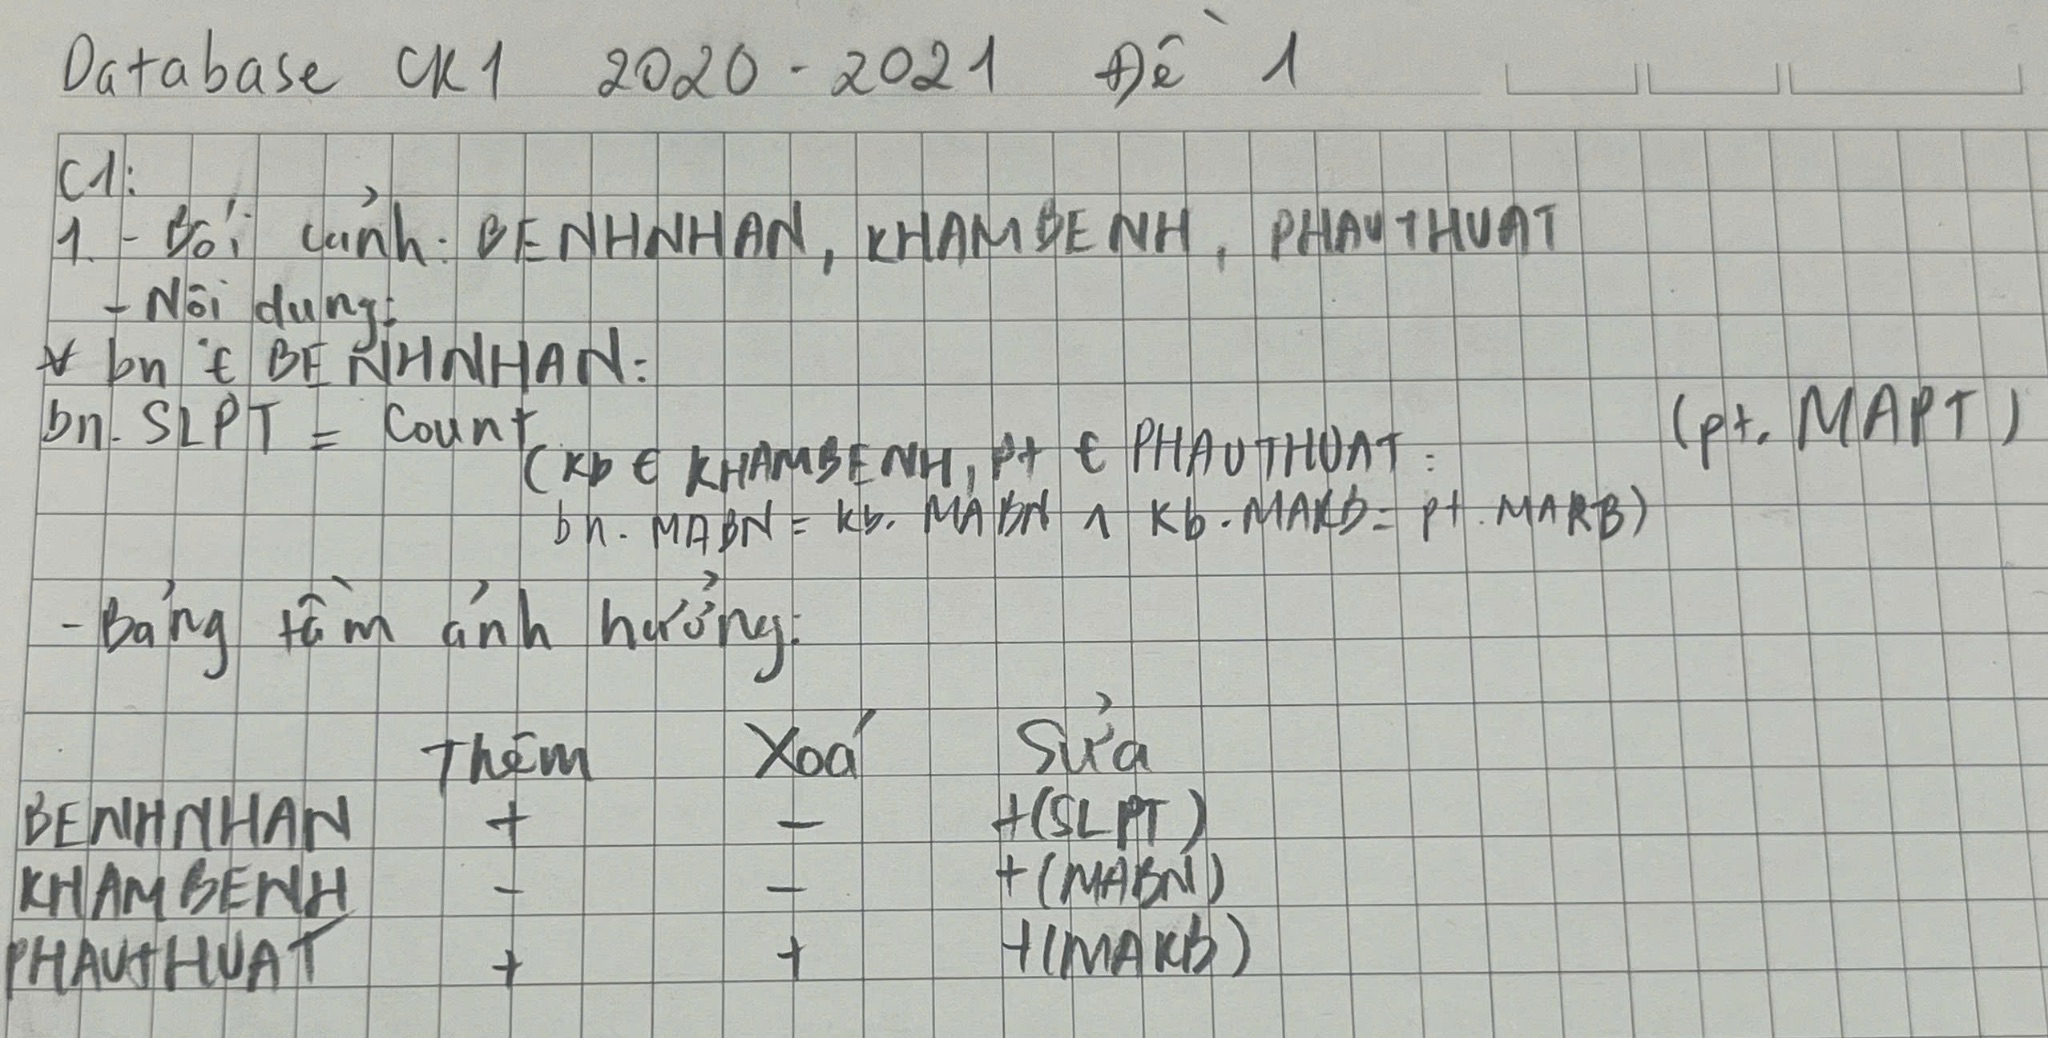 Database CK1 2020-2021 Đề 1
C1:
1. - Bối cảnh: BENHNHAN, KHAMBENH, PHAUTHUAT
- Nội dung:
∀ bn ∈ BENHNHAN:
bn. SLPT = Count (pt. MAPT)
(kb ∈ KHAMBENH, pt ∈ PHAUTHUAT:
bn. MABN = kb. MABN ∧ kb. MAKB = pt. MAKB)
- Bảng tầm ảnh hưởng:
Thêm Xoá Sửa
BENHNHAN + - +(SLPT)
KHAMBENH - - +(MABN)
PHAUTHUAT + + +(MAKB)